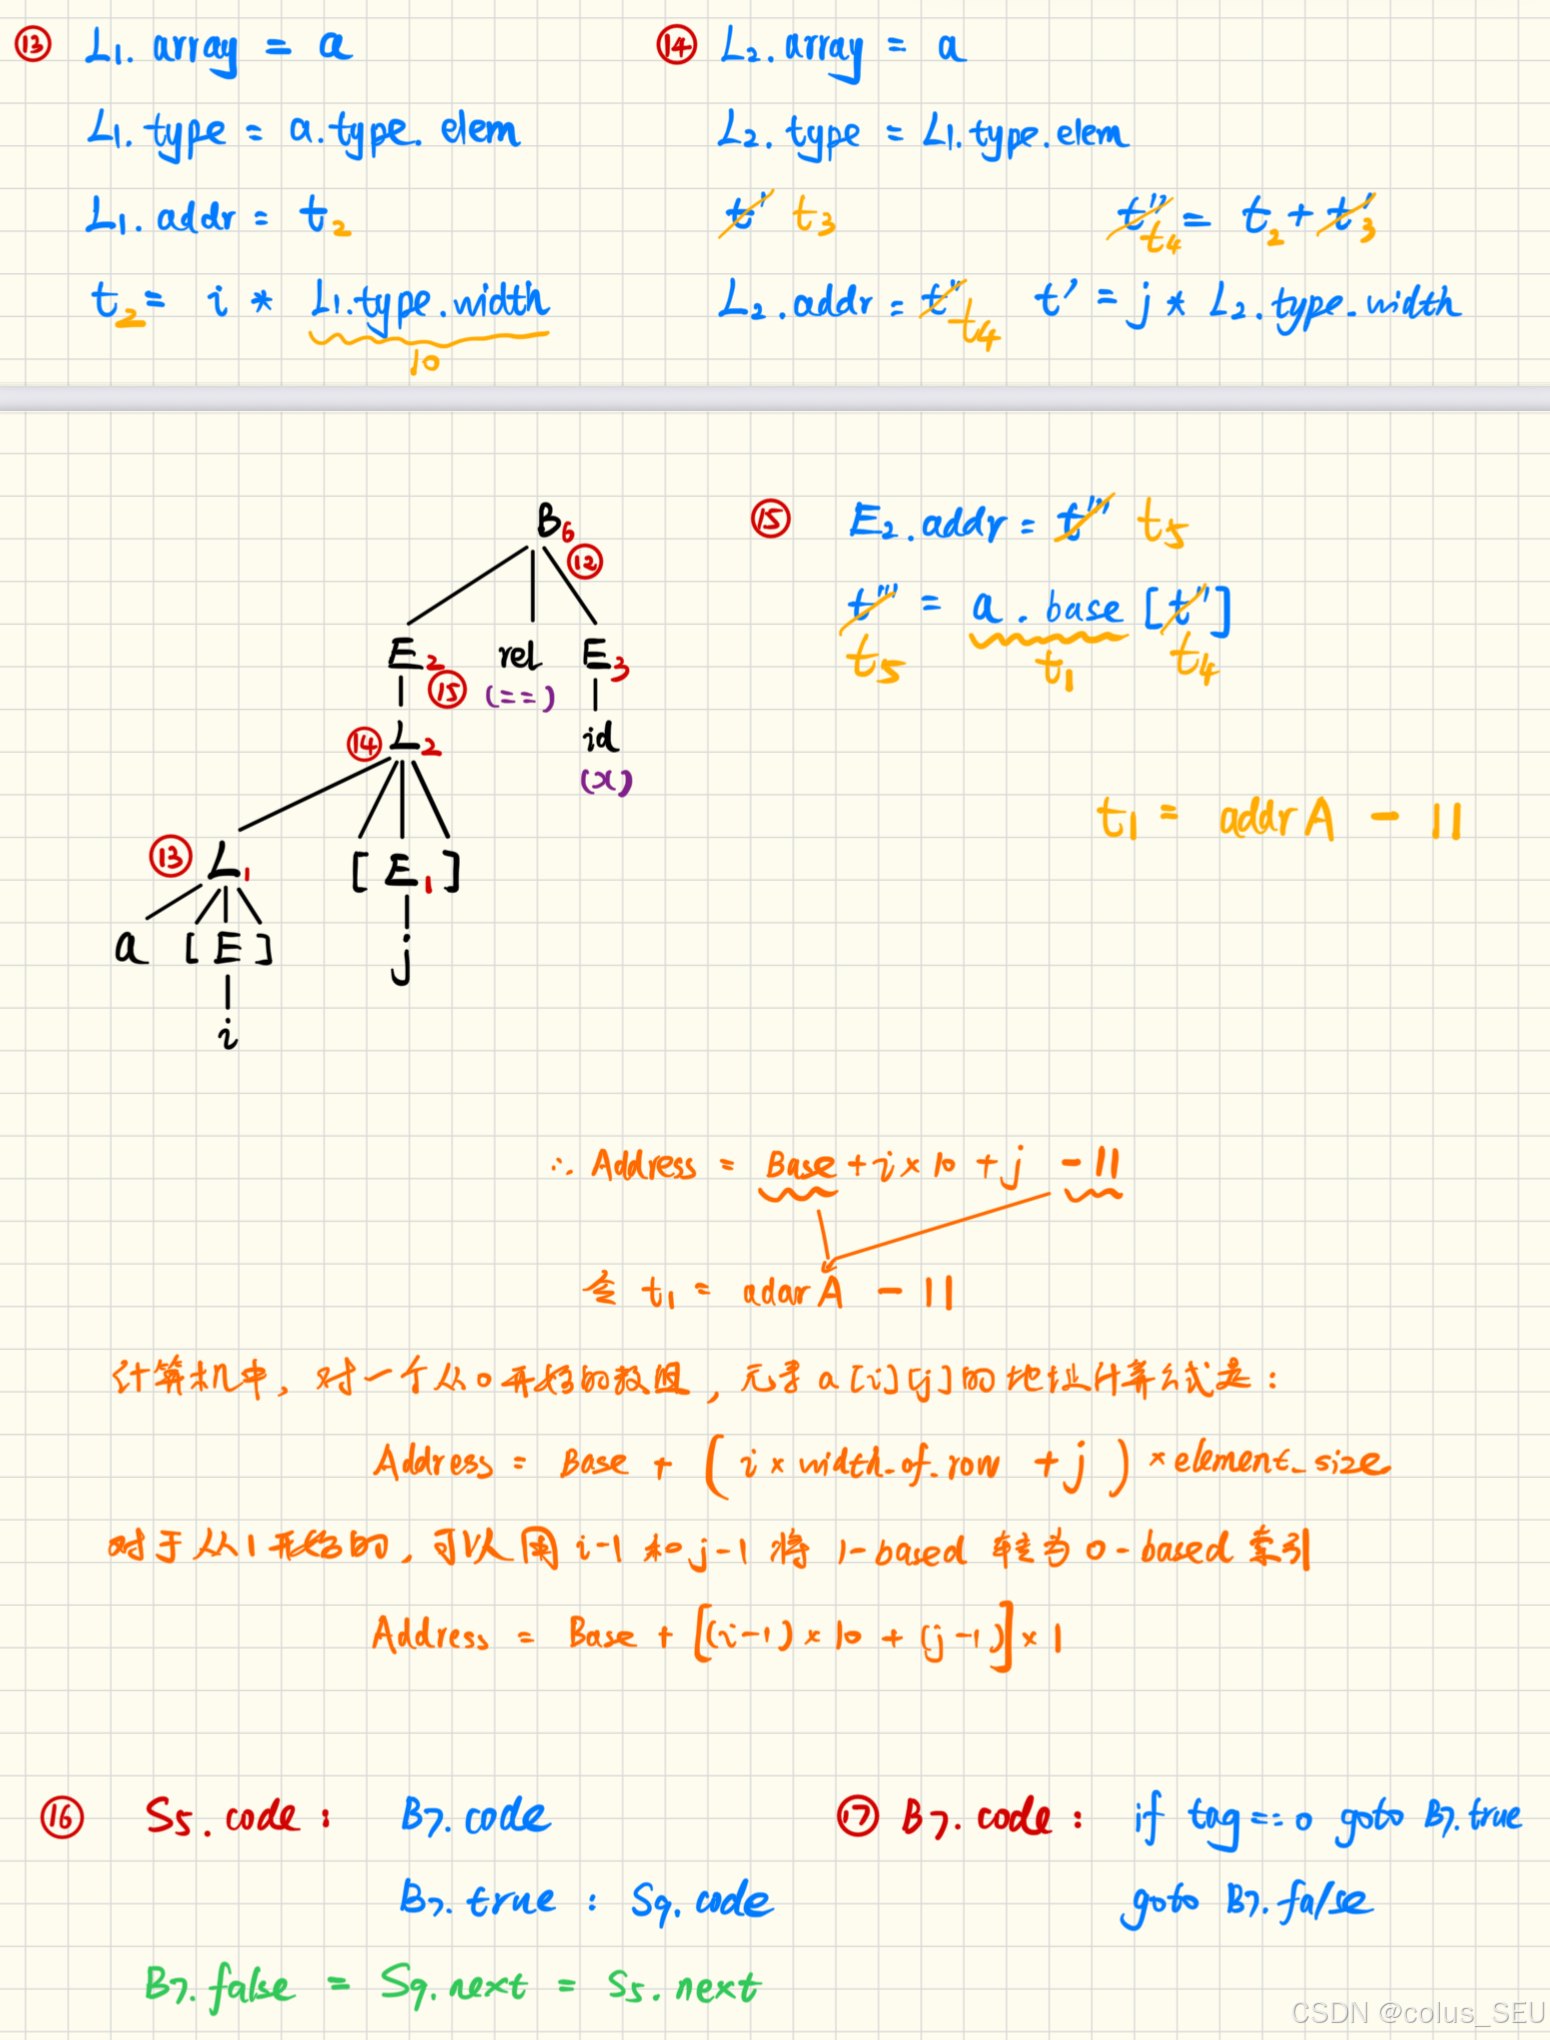 ⑬ L₁. array = a
L₁. type = a.type. elem
L₁. addr = t₂
t₂ = i * L₁.type.width
10
⑭ L₂. array = a
L₂. type = L₁.type.elem
t' t₃ t'' t₄ = t₂ + t' 3
L₂. addr = t'' t₄ t' = j * L₂.type.width
B₆
⑫
E₂ rel E₃
⑮ (==)
⑭ L₂ id
(x)
⑬ L₁ [ E₁ ]
a [ E ] j
i
⑮ E₂.addr = t''' t₅
t''' = a . base [t'']
t₅ t₁ t₄
t₁ = addr A - 11
∴ Address = Base + i × 10 + j - 11
令 t₁ = adar A - 11
计算机中, 对一个从0开始的数组, 元素 a[i][j] 的地址计算公式是:
Address = Base + ( i × width_of_row + j ) × element_size
对于从1开始的, 可以用 i-1 和 j-1 将 1-based 转为 0-based 索引
Address = Base + [(i-1) × 10 + (j-1)] × 1
⑯ S₅. code : B₇. code
B₇. true : S₉. code
B₇. false = S₉. next = S₅. next
⑰ B₇. code : if tag == 0 goto B₇. true
goto B₇. false
CSDN @colus_SEU